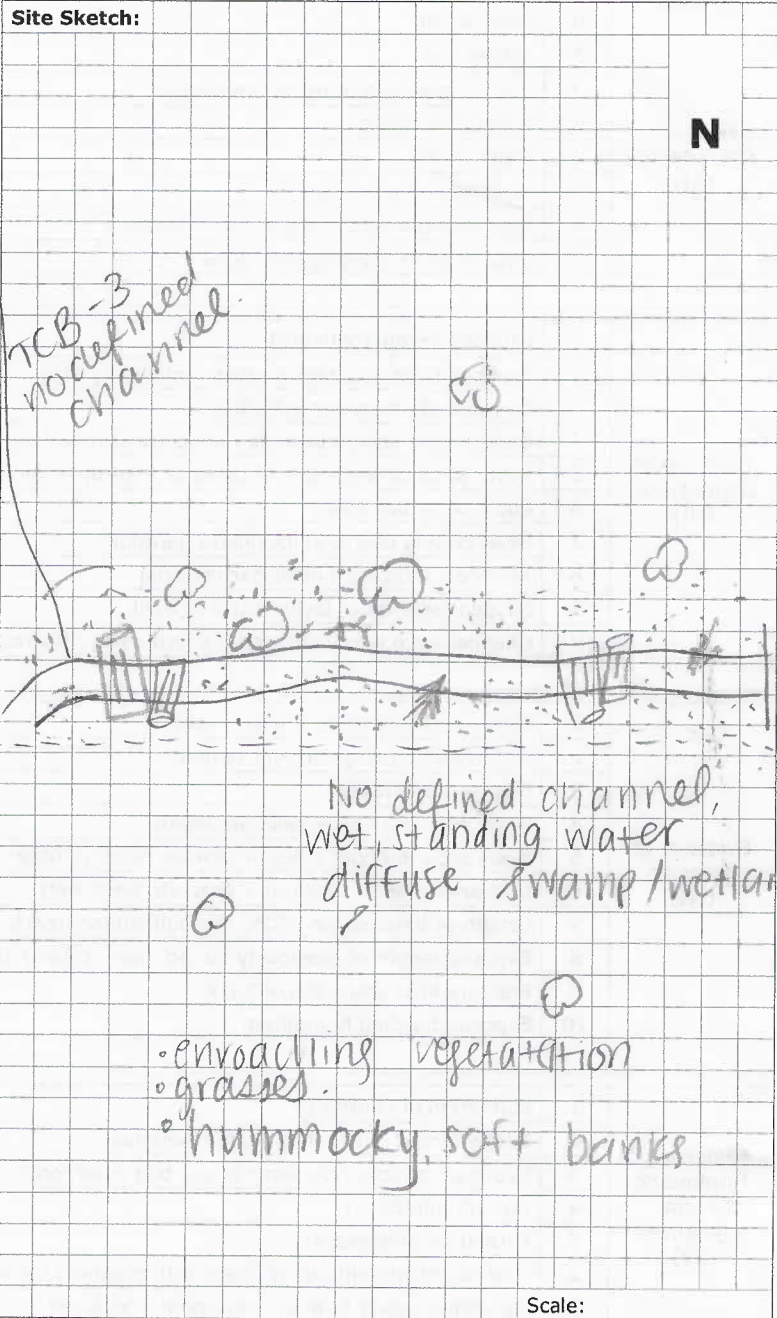 Site Sketch:
N
TCB-3
no defined
channel.
No defined channel,
wet, standing water
diffuse swamp/wetlan
• envoaching vegetatation
• grasses.
• hummocky, soft banks
Scale: